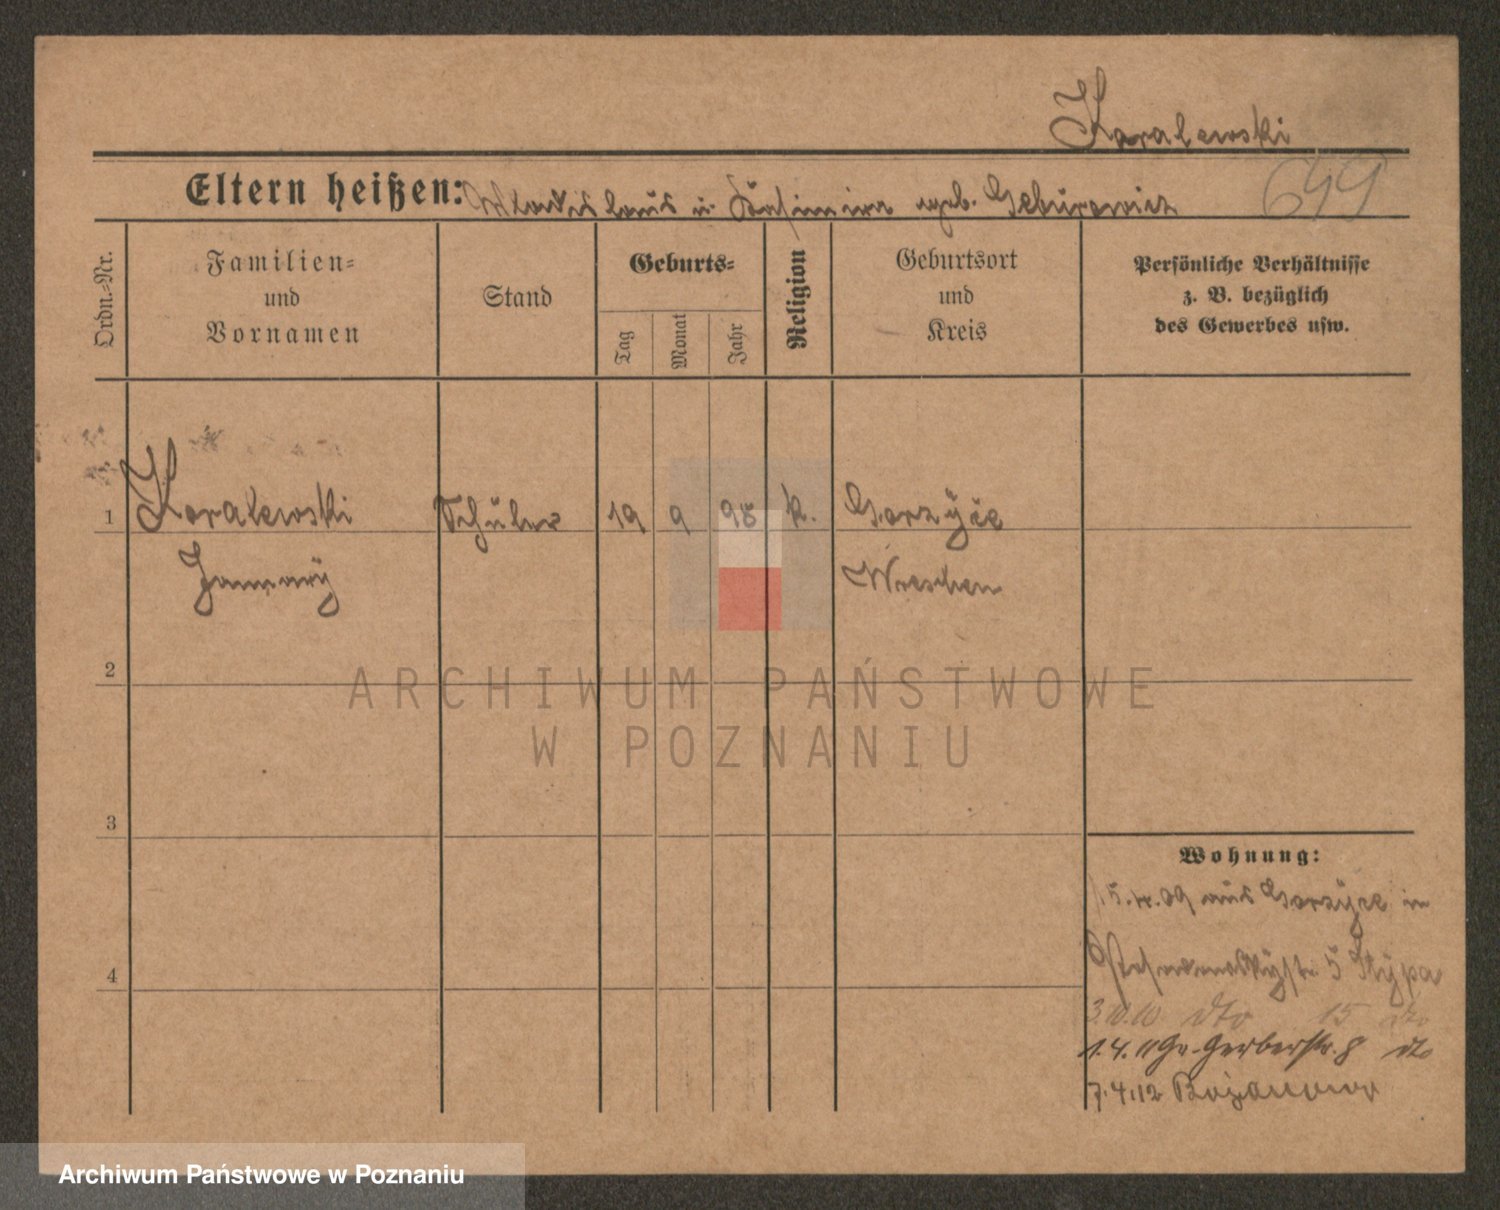 Koralewski
Eltern heißen: Wladislaus u. Kasimira geb. Geburowicz
Ordn.-Nr.
Familien-
und
Vornamen
Stand
Geburts-
Tag
Monat
Jahr
Religion
Geburtsort
und
Kreis
Persönliche Verhältnisse
z. B. bezüglich
des Gewerbes usw.
1 Koralewski Schüler 19 9 98 k. Gorzyce
January Wreschen
2
3
4
Wohnung:
15.4.09 aus Gorzyce in
5 Stypa
3.10.10 dto 15 dto
1.4.11 Gr. Gerberstr. 8 dto
7.4.12 Bojanowo
ARCHIWUM PAŃSTWOWE
W POZNANIU
Archiwum Państwowe w Poznaniu